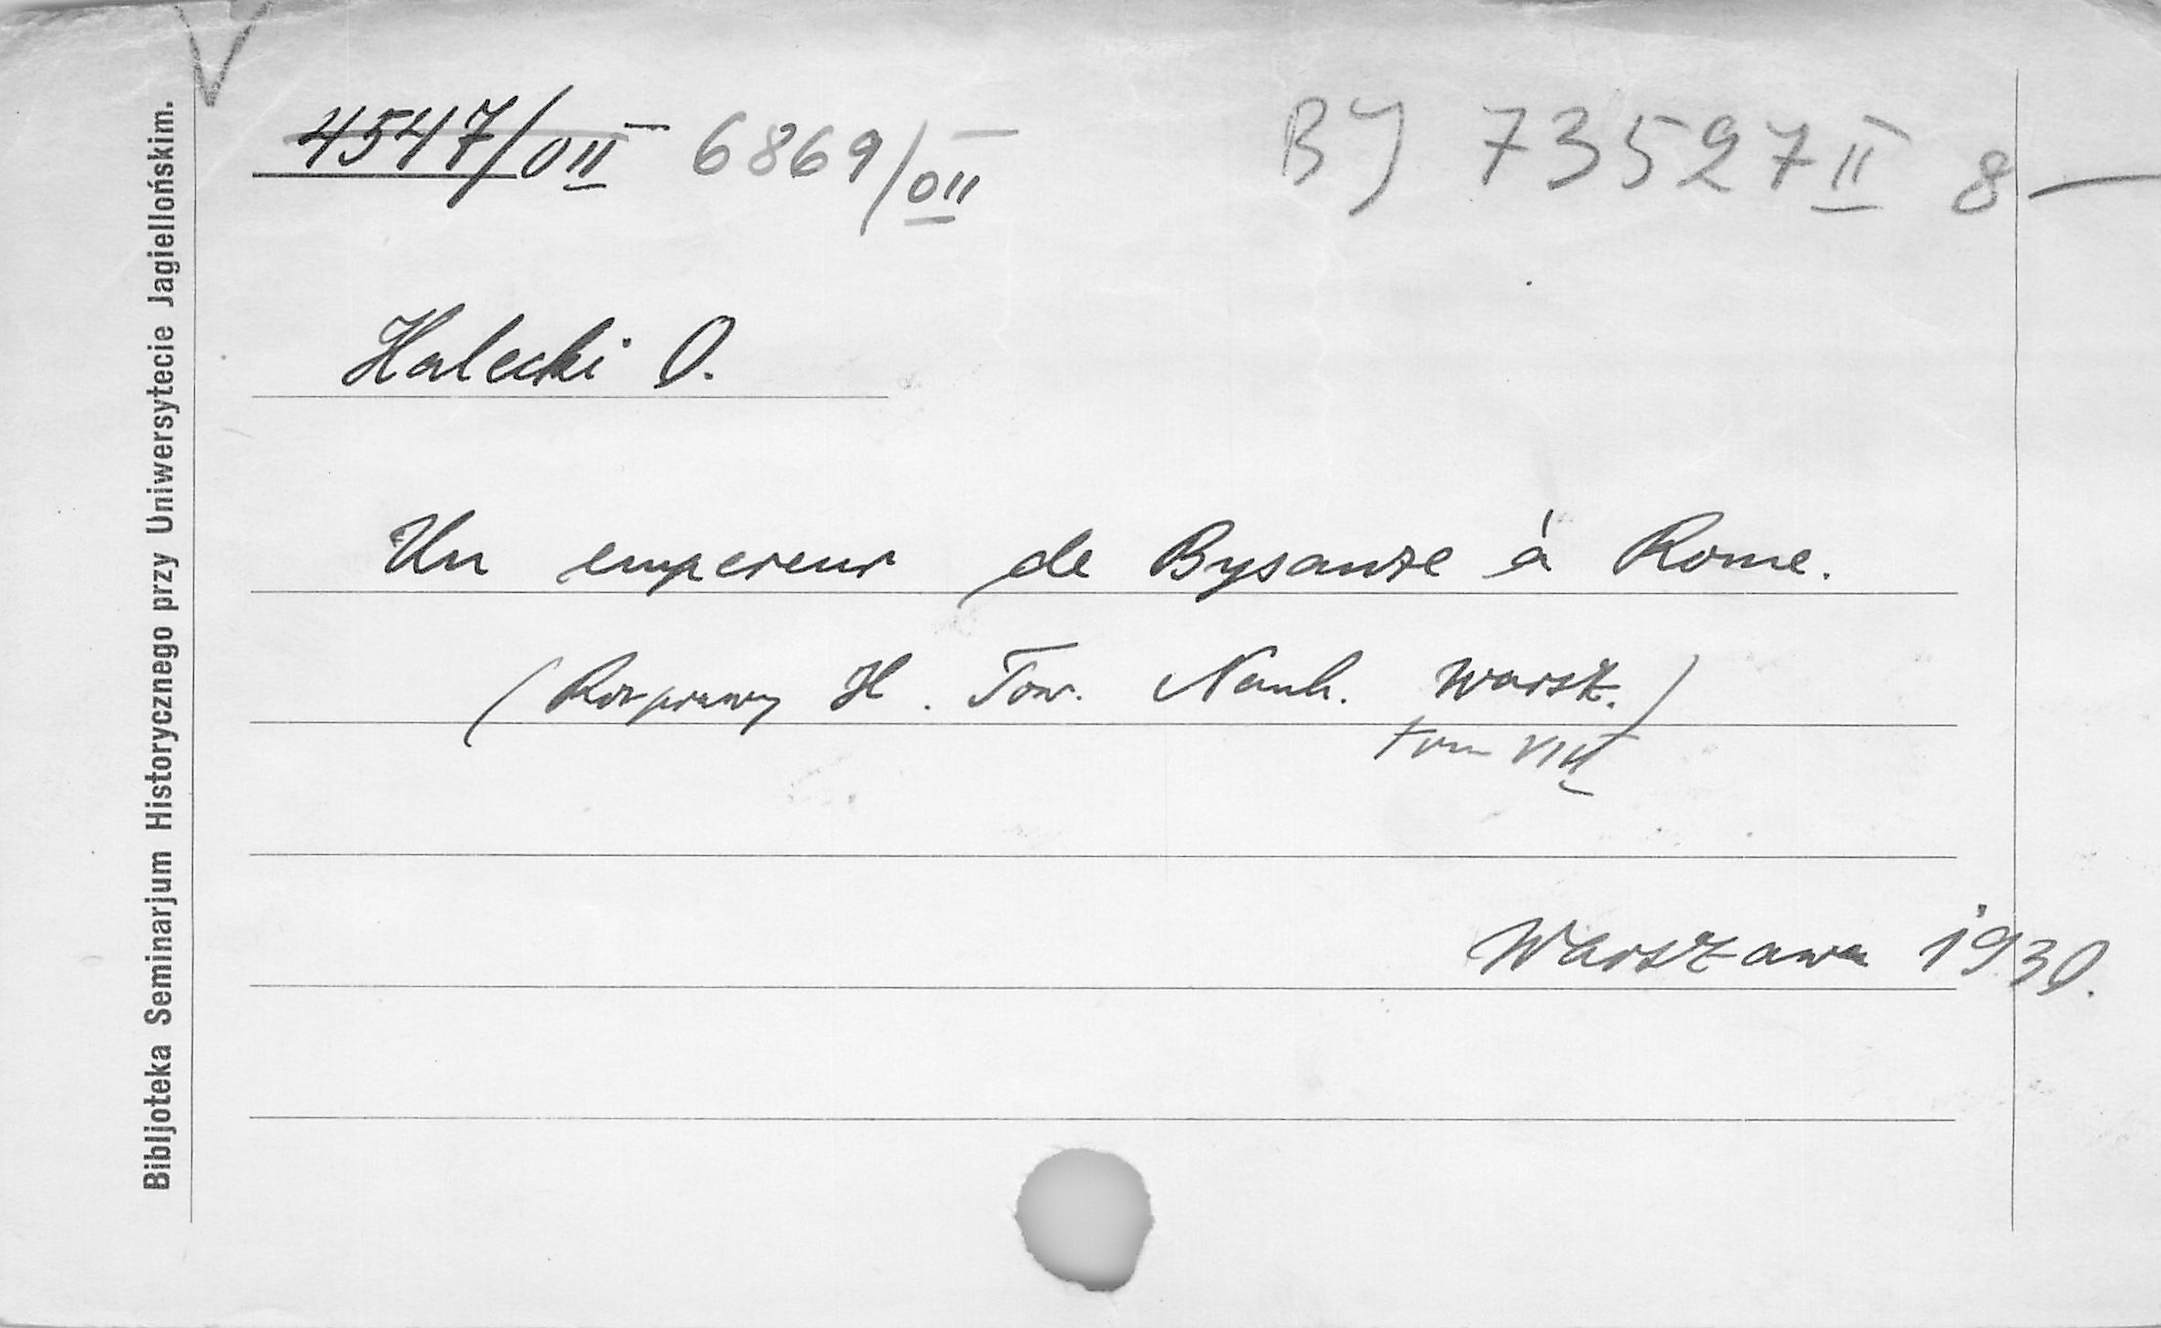 V
4547/0II 6869/0II BJ 73527 II 8—
Halecki O.
Un empereur de Bysanze à Rome.
(Rozprawy H. Tow. Nauk. Warsz.)
tom VIII
Warszawa 1930.
Bibljoteka Seminarjum Historycznego przy Uniwersytecie Jagiellońskim.